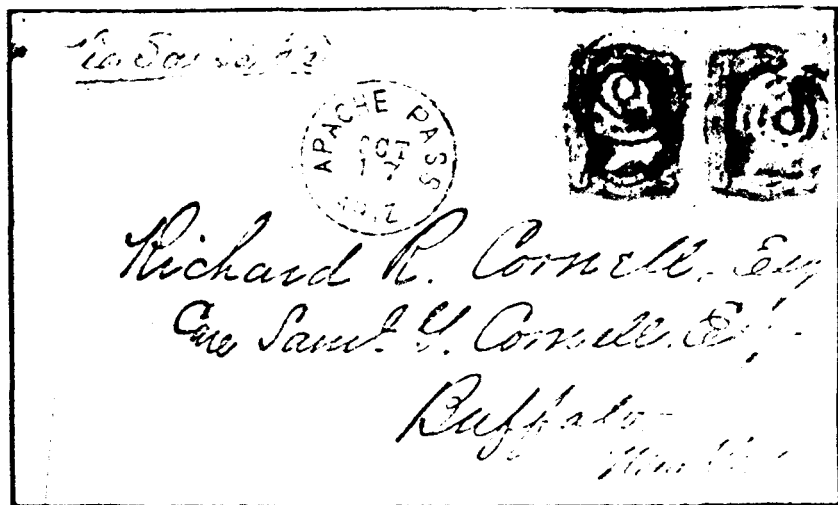 Via
APACHE PASS
OCT
ARIZ
Richard R. Cornell, Esq
Care Saml. G. Cornell. Esq.
Buffalo
New York